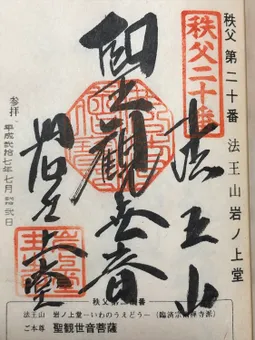 秩父第二十番 法王山岩ノ上堂
秩父二十番
法王山
聖観世音
岩之上堂
参拝 平成弐拾七年七月 弐日
法王山 岩ノ上堂―いわのうえどう―
ご本尊 聖観世音菩薩